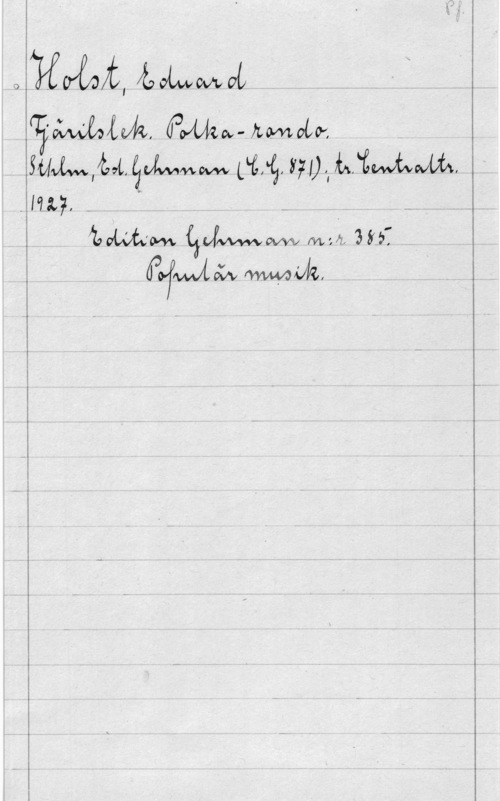 Pf.
Holst, Eduard
Fjärilslek. Polka-rondo.
Sthlm, Ed. Gehrman (C.G. 871); tr. Centraltr.
1927.
Edition Gehrman n:r 385.
Populär musik.